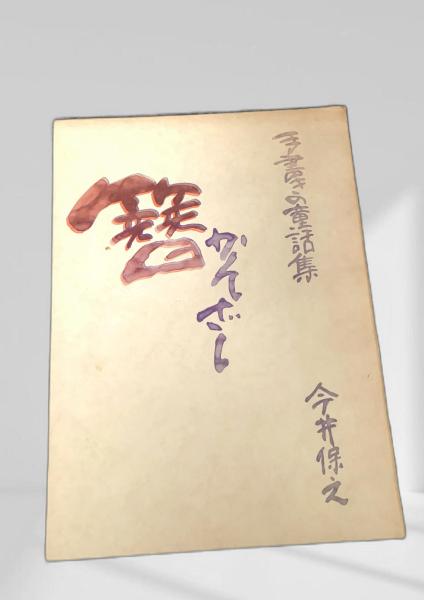 手書きの童話集
簪
かんざし
今井保之